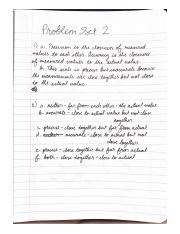 Problem Set 2
1) a. Precision is the closeness of measured
values to each other. Accuracy is the closeness
of measured values to the actual value
b. This scale is precise but inaccurate because
the measurements are close together but not close
to the actual value.
2) a. neither - far from each other + the actual value
b. accurate - close to actual value but not close
together
c. precise - close together but far from actual
d. accurate - close to actual but not
close together
e. precise - close together but far from actual
f. both - close together + close to actual